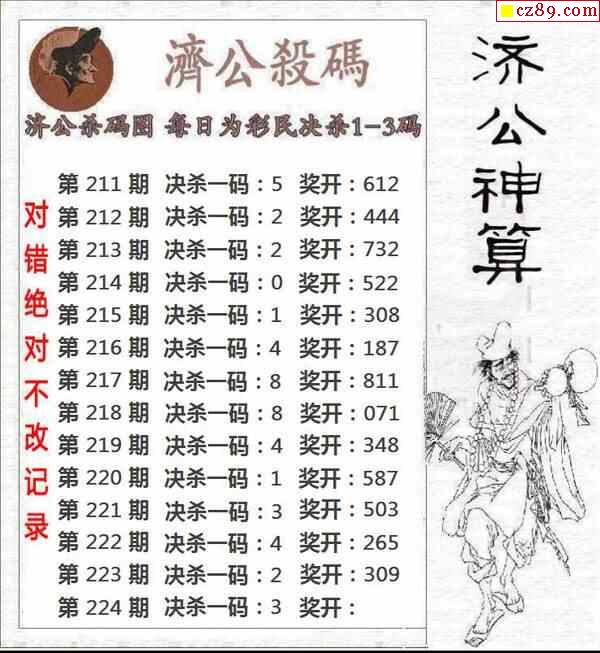 cz89.com
濟公殺碼
济公杀码图 每日为彩民决杀1-3码
第 211 期 决杀一码：5 奖开：612
第 212 期 决杀一码：2 奖开：444
第 213 期 决杀一码：2 奖开：732
第 214 期 决杀一码：0 奖开：522
第 215 期 决杀一码：1 奖开：308
第 216 期 决杀一码：4 奖开：187
第 217 期 决杀一码：8 奖开：811
第 218 期 决杀一码：8 奖开：071
第 219 期 决杀一码：4 奖开：348
第 220 期 决杀一码：1 奖开：587
第 221 期 决杀一码：3 奖开：503
第 222 期 决杀一码：4 奖开：265
第 223 期 决杀一码：2 奖开：309
第 224 期 决杀一码：3 奖开：
对错绝对不改记录
济公神算